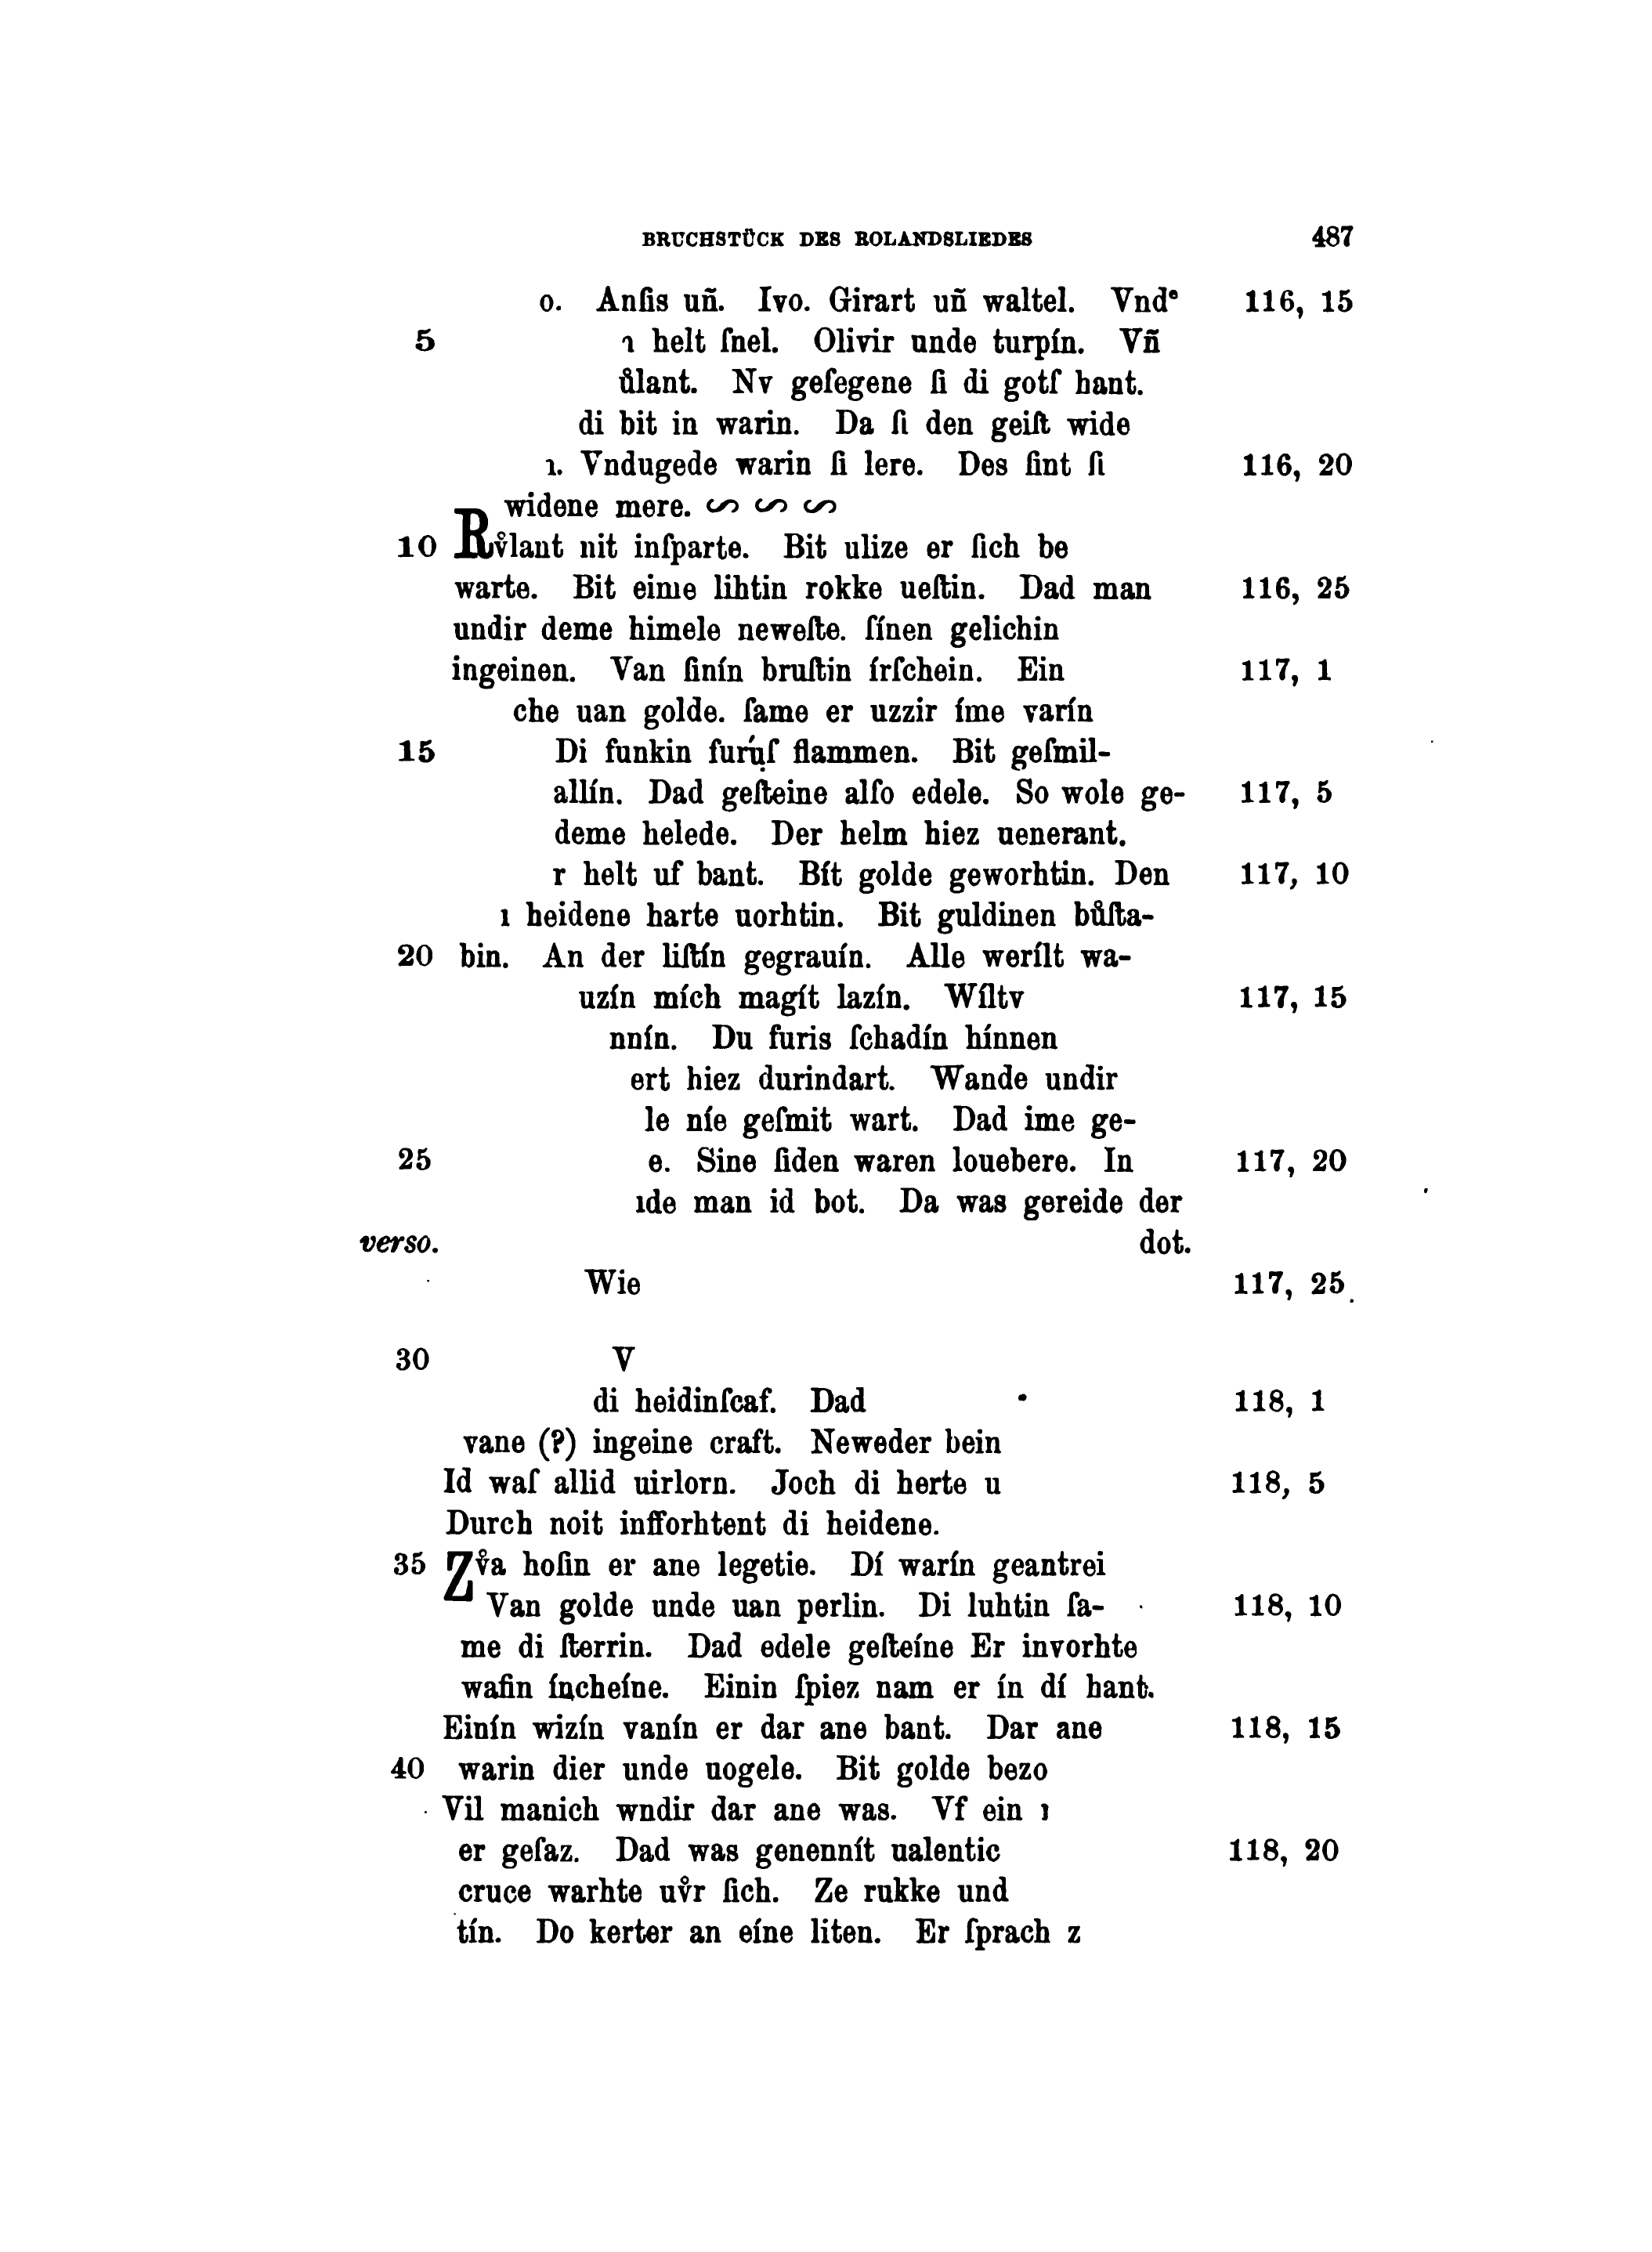 BRUCHSTÜCK DES ROLANDSLIEDES 487
o. Anſis un̄. Ivo. Girart un̄ waltel. Vndᵉ 116, 15
5 ı helt ſnel. Olivir unde turpín. Vn̄
ůlant. Nv geſegene ſi di gotſ hant.
di bit in warin. Da ſi den geiſt wide
ı. Vndugede warin ſi lere. Des ſint ſi 116, 20
widene mere. ∽ ∽ ∽
10 Rv̊lant nit inſparte. Bit ulize er ſich be
warte. Bit eime lihtin rokke ueſtin. Dad man 116, 25
undir deme himele neweſte. ſínen gelichin
ingeinen. Van ſinín bruſtin írſchein. Ein 117, 1
che uan golde. ſame er uzzir íme varín
15 Di funkin furụ́ſ flammen. Bit geſmil-
allín. Dad geſteine alſo edele. So wole ge- 117, 5
deme helede. Der helm hiez uenerant.
r helt uf bant. Bít golde geworhtin. Den 117, 10
ı heidene harte uorhtin. Bit guldinen bůſta-
20 bin. An der liſtín gegrauín. Alle werílt wa-
uzín mích magít lazín. Wíltv 117, 15
nnín. Du furis ſchadín hínnen
ert hiez durindart. Wande undir
le níe geſmit wart. Dad ime ge-
25 e. Sine ſiden waren louebere. In 117, 20
ıde man id bot. Da was gereide der
verso. dot.
Wie 117, 25
30 V
di heidinſcaf. Dad 118, 1
vane (?) ingeine craft. Neweder bein
Id waſ allid uirlorn. Joch di herte u 118, 5
Durch noit infforhtent di heidene.
35 Zv̊a hoſin er ane legetie. Dí warín geantrei
Van golde unde uan perlin. Di luhtin ſa- 118, 10
me di ſterrin. Dad edele geſteíne Er invorhte
waſin íncheíne. Einin ſpiez nam er ín dí hant.
Einín wizín vanín er dar ane bant. Dar ane 118, 15
40 warin dier unde uogele. Bit golde bezo
Vil manich wndir dar ane was. Vf ein ı
er geſaz. Dad was genennít ualentic 118, 20
cruce warhte uv̊r ſich. Ze rukke und
tín. Do kerter an eíne liten. Er ſprach z